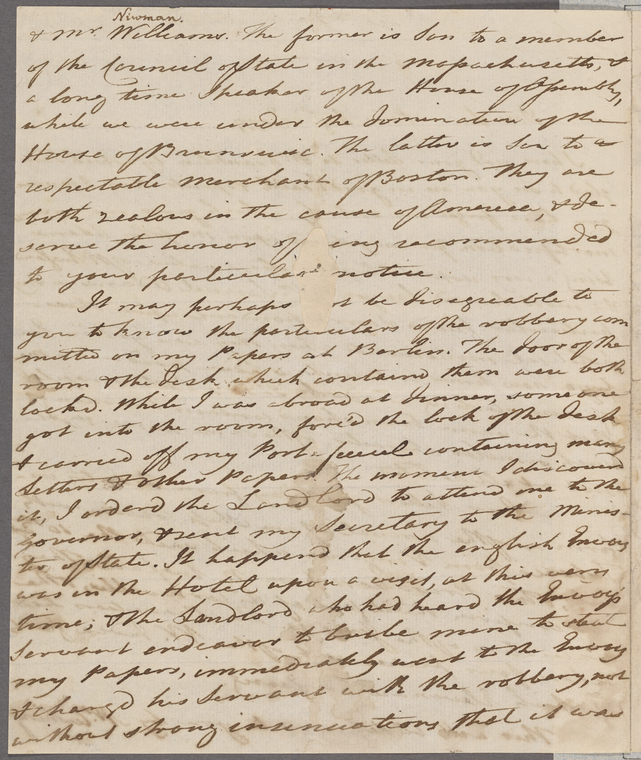 Newman.
& Mr. Williams. The former is Son to a member
of the Council of State in the Massachusetts, &
a long time Speaker of the House of Assembly,
while we were under the Domination of the
House of Brunswic. The latter is Son to a
respectable Merchant of Boston. They are
both zealous in the cause of America, & de-
serve the honor of ing recommended
to your particular notice.
It may perhaps ot be disagreeable to
you to know the particulars of the robbery com
mitted on my Papers at Berlin. The door of the
room & the desk which containd them were both
locked. While I was abroad at dinner, some one
got into the room, forc'd the lock of the desk
& carried off my Port-feuil containing many
Letters & other Papers. The moment I discoverd
it, I orderd the Landlord to attend me to the
Governor, & sent my Secretary to the Minis-
ter of State. It happend that the english Envoy
was in the Hotel upon a visit, at this very
time; & the Landlord who had heard the Envoys
Servant endeavor to bribe mine to steal
my Papers, immediately went to the Envoy
& chargd his Servant with the robbery, not
without strong insinuations that it was